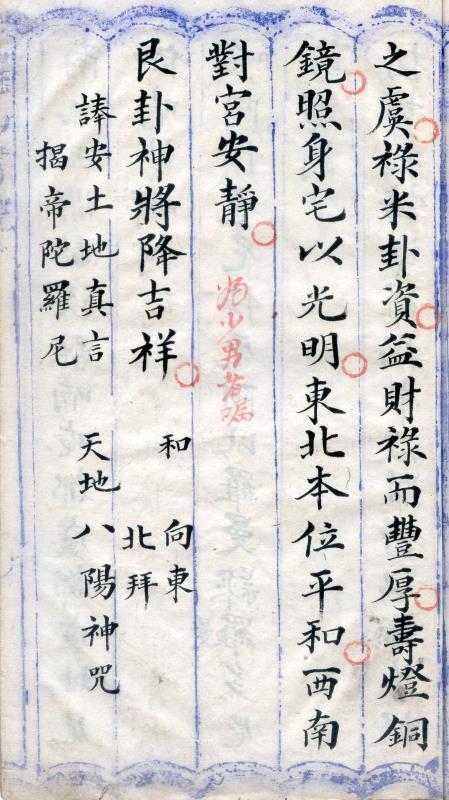 之虞祿米卦資益財祿而豐厚壽燈銅
鏡照身宅以光明東北本位平和西南
對宮安靜
为少男者嘱
艮卦神將降吉祥
和
向東
北拜
諱安土地真言
天地八陽神咒
揭帝陀羅尼